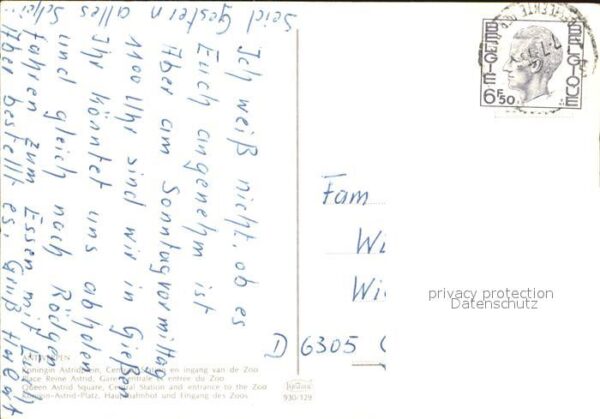 Seid Gestern
alles
Ich weiß nicht, ob es
Euch angenehm ist
Aber am Sonntagvormittag
1100 Uhr sind wir in Gießen
Ihr könntet uns abholen
und gleich nach Rödgen
fahren zum Essen mit Euch
Aber bestellt es, Gruß
BELGIE BELGIQUE
6F50
Fam
Wi
Wi
D 6305
privacy protection
Datenschutz
ANTWERPEN
Koningin Astridplein, Central Station en ingang van de Zoo
Place Reine Astrid, Gare centrale et entrée du Zoo
Queen Astrid Square, Central Station and entrance to the Zoo
Königin-Astrid-Platz, Hauptbahnhof und Eingang des Zoos
930-129